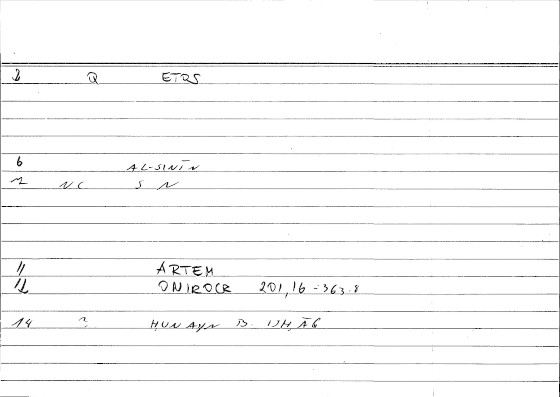 2 Q ETRS
6 AL-SINĪN
7 NC S N
11 ARTEM
12 ONIROCR 201,16-363.8
14 ? ḤUNAYN B. ISḤĀQ